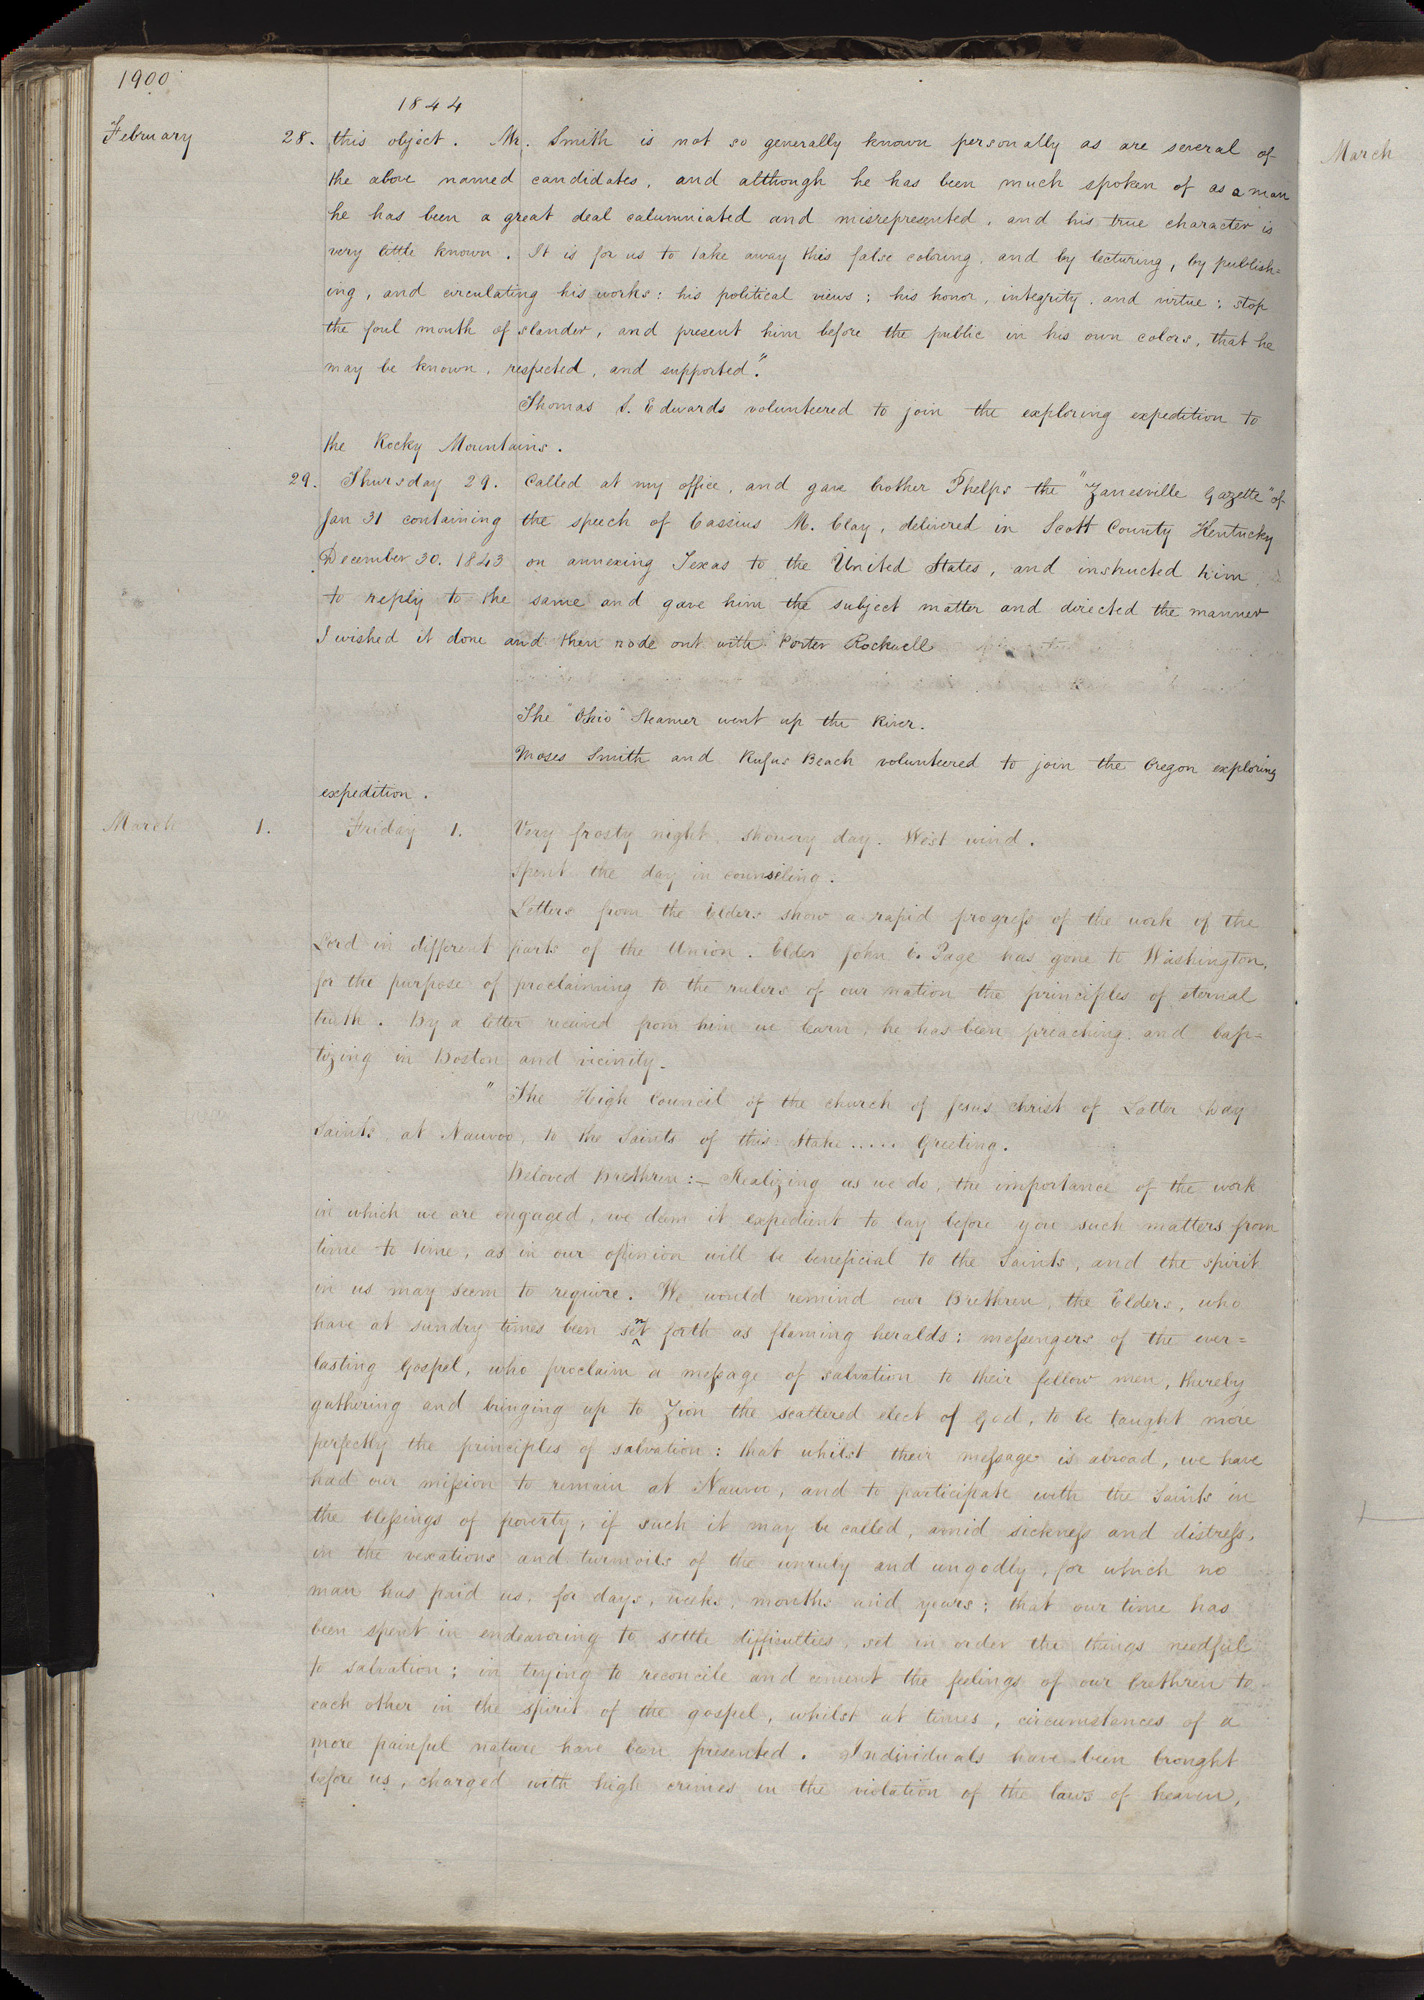 1900
1844
February 28. this object. Mr. Smith is not so generally known personally as are several of
the above named candidates, and although he has been much spoken of as a man
he has been a great deal calumniated and misrepresented, and his true character is
very little known. It is for us to take away this false coloring, and by lecturing, by publish=
ing, and circulating his works: his political views; his honor, integrity, and virtue; stop
the foul mouth of slander, and present him before the public in his own colors, that he
may be known, respected, and supported."
Thomas S. Edwards volunteered to join the exploring expedition to
the Rocky Mountains.
29. Thursday 29. Called at my office, and gave brother Phelps the "Zanesville Gazette" of
Jan 31 containing the speech of Cassius M. Clay, delivered in Scott County Kentucky
December 30. 1843 on annexing Texas to the United States, and instructed him
to reply to the same and gave him the subject matter and directed the manner
I wished it done and then rode out with Porter Rockwell
The "Ohio" Steamer went up the River.
Moses Smith and Rufus Beach volunteered to join the Oregon exploring
expedition.
March 1. Friday 1. Very frosty night, showery day. West wind.
Spent the day in counseling.
Letters from the Elders show a rapid progress of the work of the
Lord in different parts of the Union. Elder John E. Page has gone to Washington,
for the purpose of proclaiming to the rulers of our nation the principles of eternal
truth. By a letter received from him we learn, he has been preaching and bap=
tizing in Boston and vicinity.
" The High Council of the church of Jesus Christ of Latter Day
Saints, at Nauvoo, to the Saints of this Stake..... Greeting.
Beloved Brethren:— Realizing as we do, the importance of the work
in which we are engaged, we deem it expedient to lay before you such matters from
time to time, as in our opinion will be beneficial to the Saints, and the spirit
in us may seem to require. We would remind our Brethren, the Elders, who
have at sundry times been sent forth as flaming heralds; messengers of the ever=
lasting Gospel, who proclaim a message of salvation to their fellow men, thereby
gathering and bringing up to Zion the scattered elect of God, to be taught more
perfectly the principles of salvation: that whilst their message is abroad, we have
had our mission to remain at Nauvoo, and to participate with the Saints in
the blessings of poverty, if such it may be called, amid sickness and distress,
in the vexations and turmoils of the unruly and ungodly, for which no
man has paid us, for days, weeks, months and years; that our time has
been spent in endeavoring to settle difficulties, set in order the things needful
to salvation; in trying to reconcile and cement the feelings of our brethren to
each other in the spirit of the gospel, whilst at times, circumstances of a
more painful nature have been presented. Individuals have been brought
before us, charged with high crimes in the violation of the laws of heaven,
March